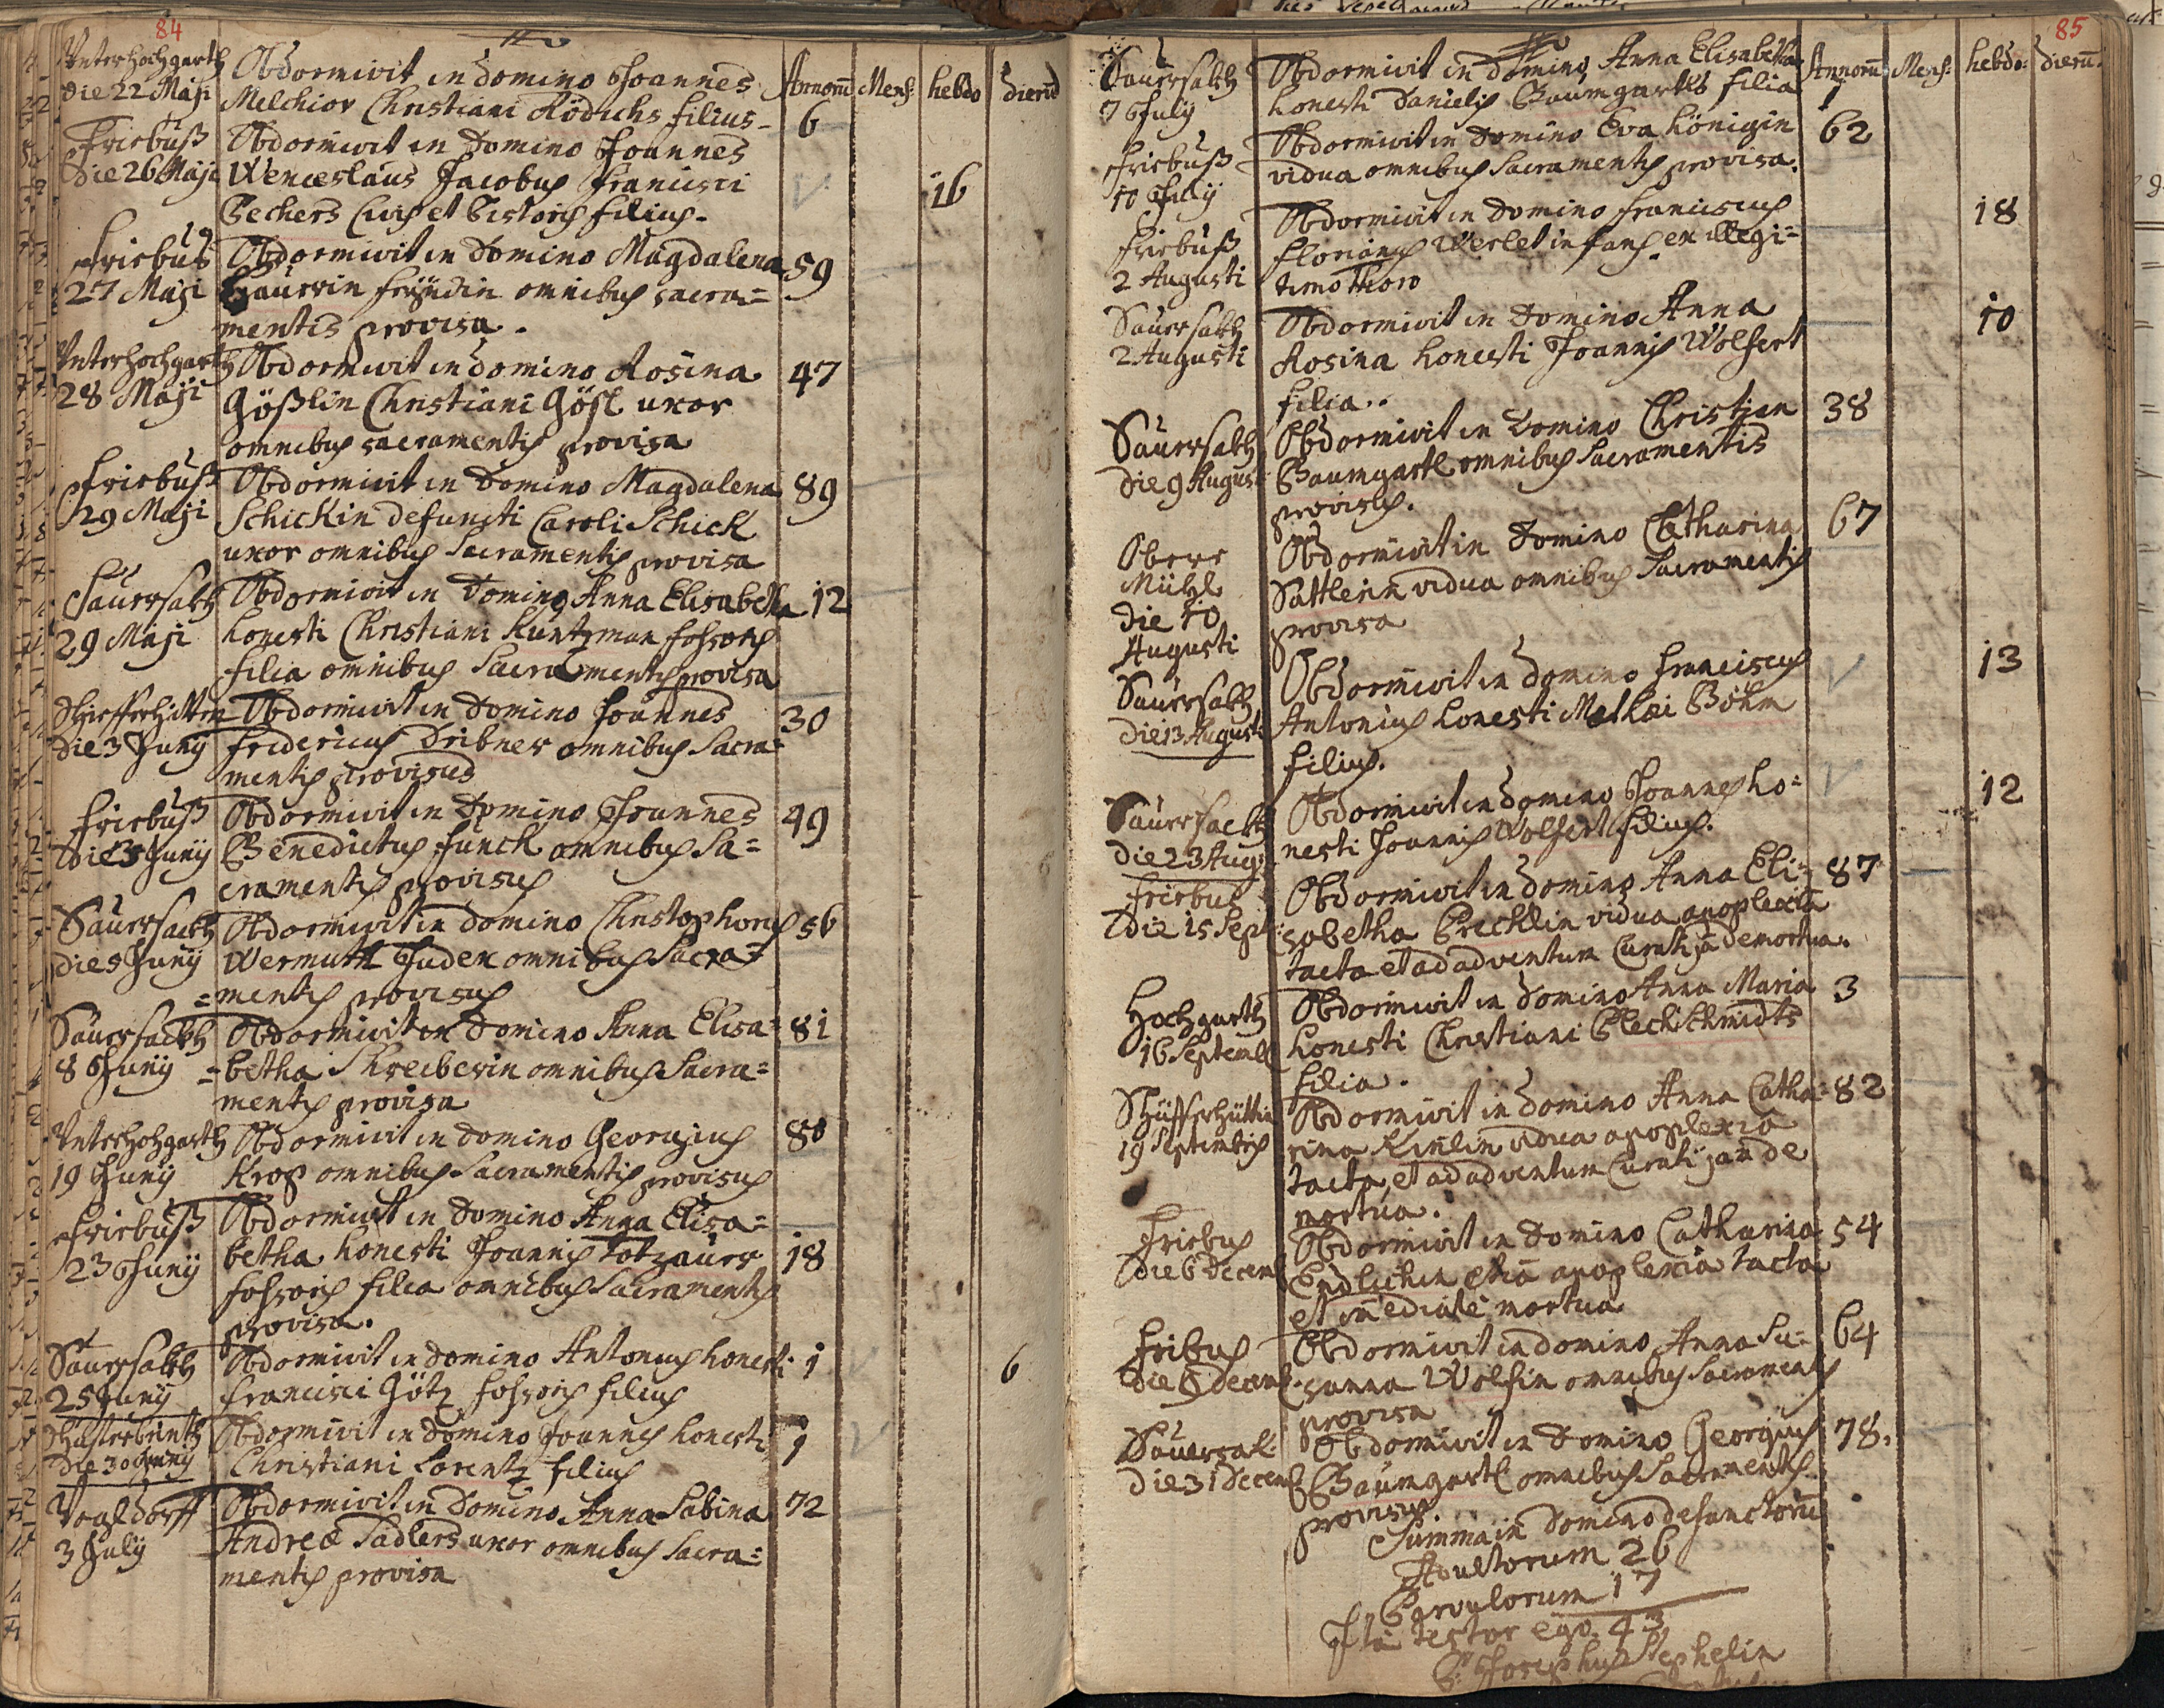 84
Unterhochgarth
die 22 Maji
Obdormivit in Domino Joannes
Melchior Christiani Rödichs filius
Annorū Mens: hebdo dierū
6
Friebuß
Die 26 Maji
Obdormivit in Domino Joannes
Wenceslaus Jacobus Francisci
Bechers Civis et Pistoris filius.
16
Friebus
27 Maji
Obdormivit in Domino Magdalena
omnibus sacra=
mentis provisa.
59
Unterhochgarth
28 Maji
Obdormivit in domino Rosina
Gößlin Christiani Gößl uxor
omnibus sacramentis provisa
47
Friebuß
29 Maji
Obdormivit in Domino Magdalena
Schickin defuncti Caroli Schick
uxor omnibus Sacramentis provisa
89
Sauersakh
29 Maji
Obdormivit in Domino Anna Elisabetha
honesti Christiani Kuntzman fossoris
filia omnibus Sacramentis provisa
12
die 3 Juny
Obdormivit in Domino Joannes
Fridericus Dribner omnibus Sacra=
mentis provisus
30
Friebuß
Die 3 Juny
Obdormivit in Domino Joannes
Benedictus Funck omnibus Sa=
cramentis provisus
49
Sauersackh
die 5 Juny
Obdormivit in Domino Christophorus
Wermuth Judex omnibus Sacra=
=mentis provisus
56
Sauersackh
8 Juny
Obdormivit in Domino Anna Elisa=
=betha Schreiberin omnibus Sacra=
mentis provisa
81
Unterhohgarth
19 Juny
Obdormivit in Domino Georgius
Krop omnibus Sacramentis provisus
80
Friebuß
23 Juny
Obdormivit in Domino Anna Elisa=
betha honesti Joannis Totzauers
fossoris filia omnibus Sacramentis
provisa.
18
Sauersakh
25 Juny
Obdormivit in domino Antonius honesti
Francisci Götz fossoris filius
1
6
die 30 Juny
Obdormivit in Domino Joannes honesti
Christiani Lorentz filius
1
Vogldorff
3 July
Obdormivit in Domino Anna Sabina
Andreæ Sadlers uxor omnibus Sacra=
mentis provisa
72
85
Sauersakh
7 July
Obdormivit in Domino Anna Elisabetha
honesti Danielis Baumgartls filia
Annorū Mens: hebdo: dierū.
1
Friebuß
10 July
Obdormivit in Domino Eva Königin
vidua omnibus Sacramentis provisa.
62
Friebuß
2 Augusti
Obdormivit in Domino Franciscus
Florianus Werlet infans ex illegi=
timo thoro
18
Sauersakh
2 Augusti
Obdormivit in Domino Anna
Rosina honesti Joannis Wolfert
filia.
10
Sauersakh
die 9 August
Obdormivit in Domino Christian
Baumgartl omnibus Sacramentis
provisus.
38
Oberr
Mühl
die 10
Augusti
Obdormivit in Domino Catharina
Sattlerin vidua omnibus Sacramentis
provisa
67
Sauersakh
die 13 Augusti
Obdormivit in Domino Franciscus
Antonius honesti Mathæi Böhm
filius.
13
Sauersackh
die 23 Aug:
Obdormivit in Domino Joannes ho=
nesti Joannis Wolfert filius.
12
Friebus
Die 15 Sept:
Obdormivit in Domino Anna Eli=
sabetha vidua apoplexia
tacta et ad adventum Curati jā demortua.
87
Hochgarth
16 Septemb
Obdormivit in Domino Anna Maria
honesti Christiani Blechschmidts
filia.
3
19 Septembris
Obdormivit in Domino Anna Catha=
rina vidua apoplexia
tacta, et ad adventum Curati jam de
mortua.
82
Friebus
Die 6 Decemb
Obdormivit in Domino Catharina
apoplexia tacta
et im̄ediatè mortua
54
Fribus
Obdormivit in domino Anna Su=
sanna Wolfin omnibus Sacramentis
provisa
64
Sauersak:
die 31 Decemb
Obdormivit in Domino Georgius
Baumgartl omnibus Sacramentis
provisus
78.
Summa in Domino defunctorū
Adultorum 26
Parvulorum 17
Ita testor ego. 43
P: Josephus Stephelin